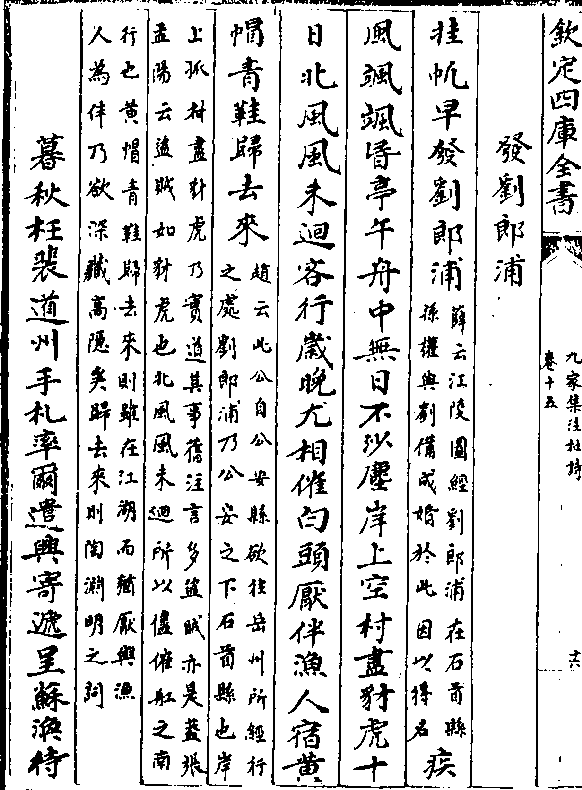 欽定四庫全書
九家集注杜詩
卷十五
十六
發劉郎浦
挂帆早發劉郎浦
薛云江陵圖經劉郎浦在石首縣
孫權與劉備成婚於此因以得名
疾
風颯颯昏亭午舟中無日不沙塵岸上空村盡豺虎十
日北風風未迴客行歲晚尤相催白頭厭伴漁人宿黄
帽青鞋歸去來
趙云此公自公安縣欲往岳州所經行
之處劉郎浦乃公安之下石首縣也岸
上孤村盡豺虎乃實道其事舊注言多盜賊亦是蓋張
孟陽云盜賊如豺虎也北風風未迴所以儘催舡之南
行也黄帽青鞋歸去來則雖在江湖而猶厭與漁
人為伴乃欲深藏高隠矣歸去來則陶淵明之詞
暮秋枉裴道州手札率爾遣興寄遞呈蘇渙侍